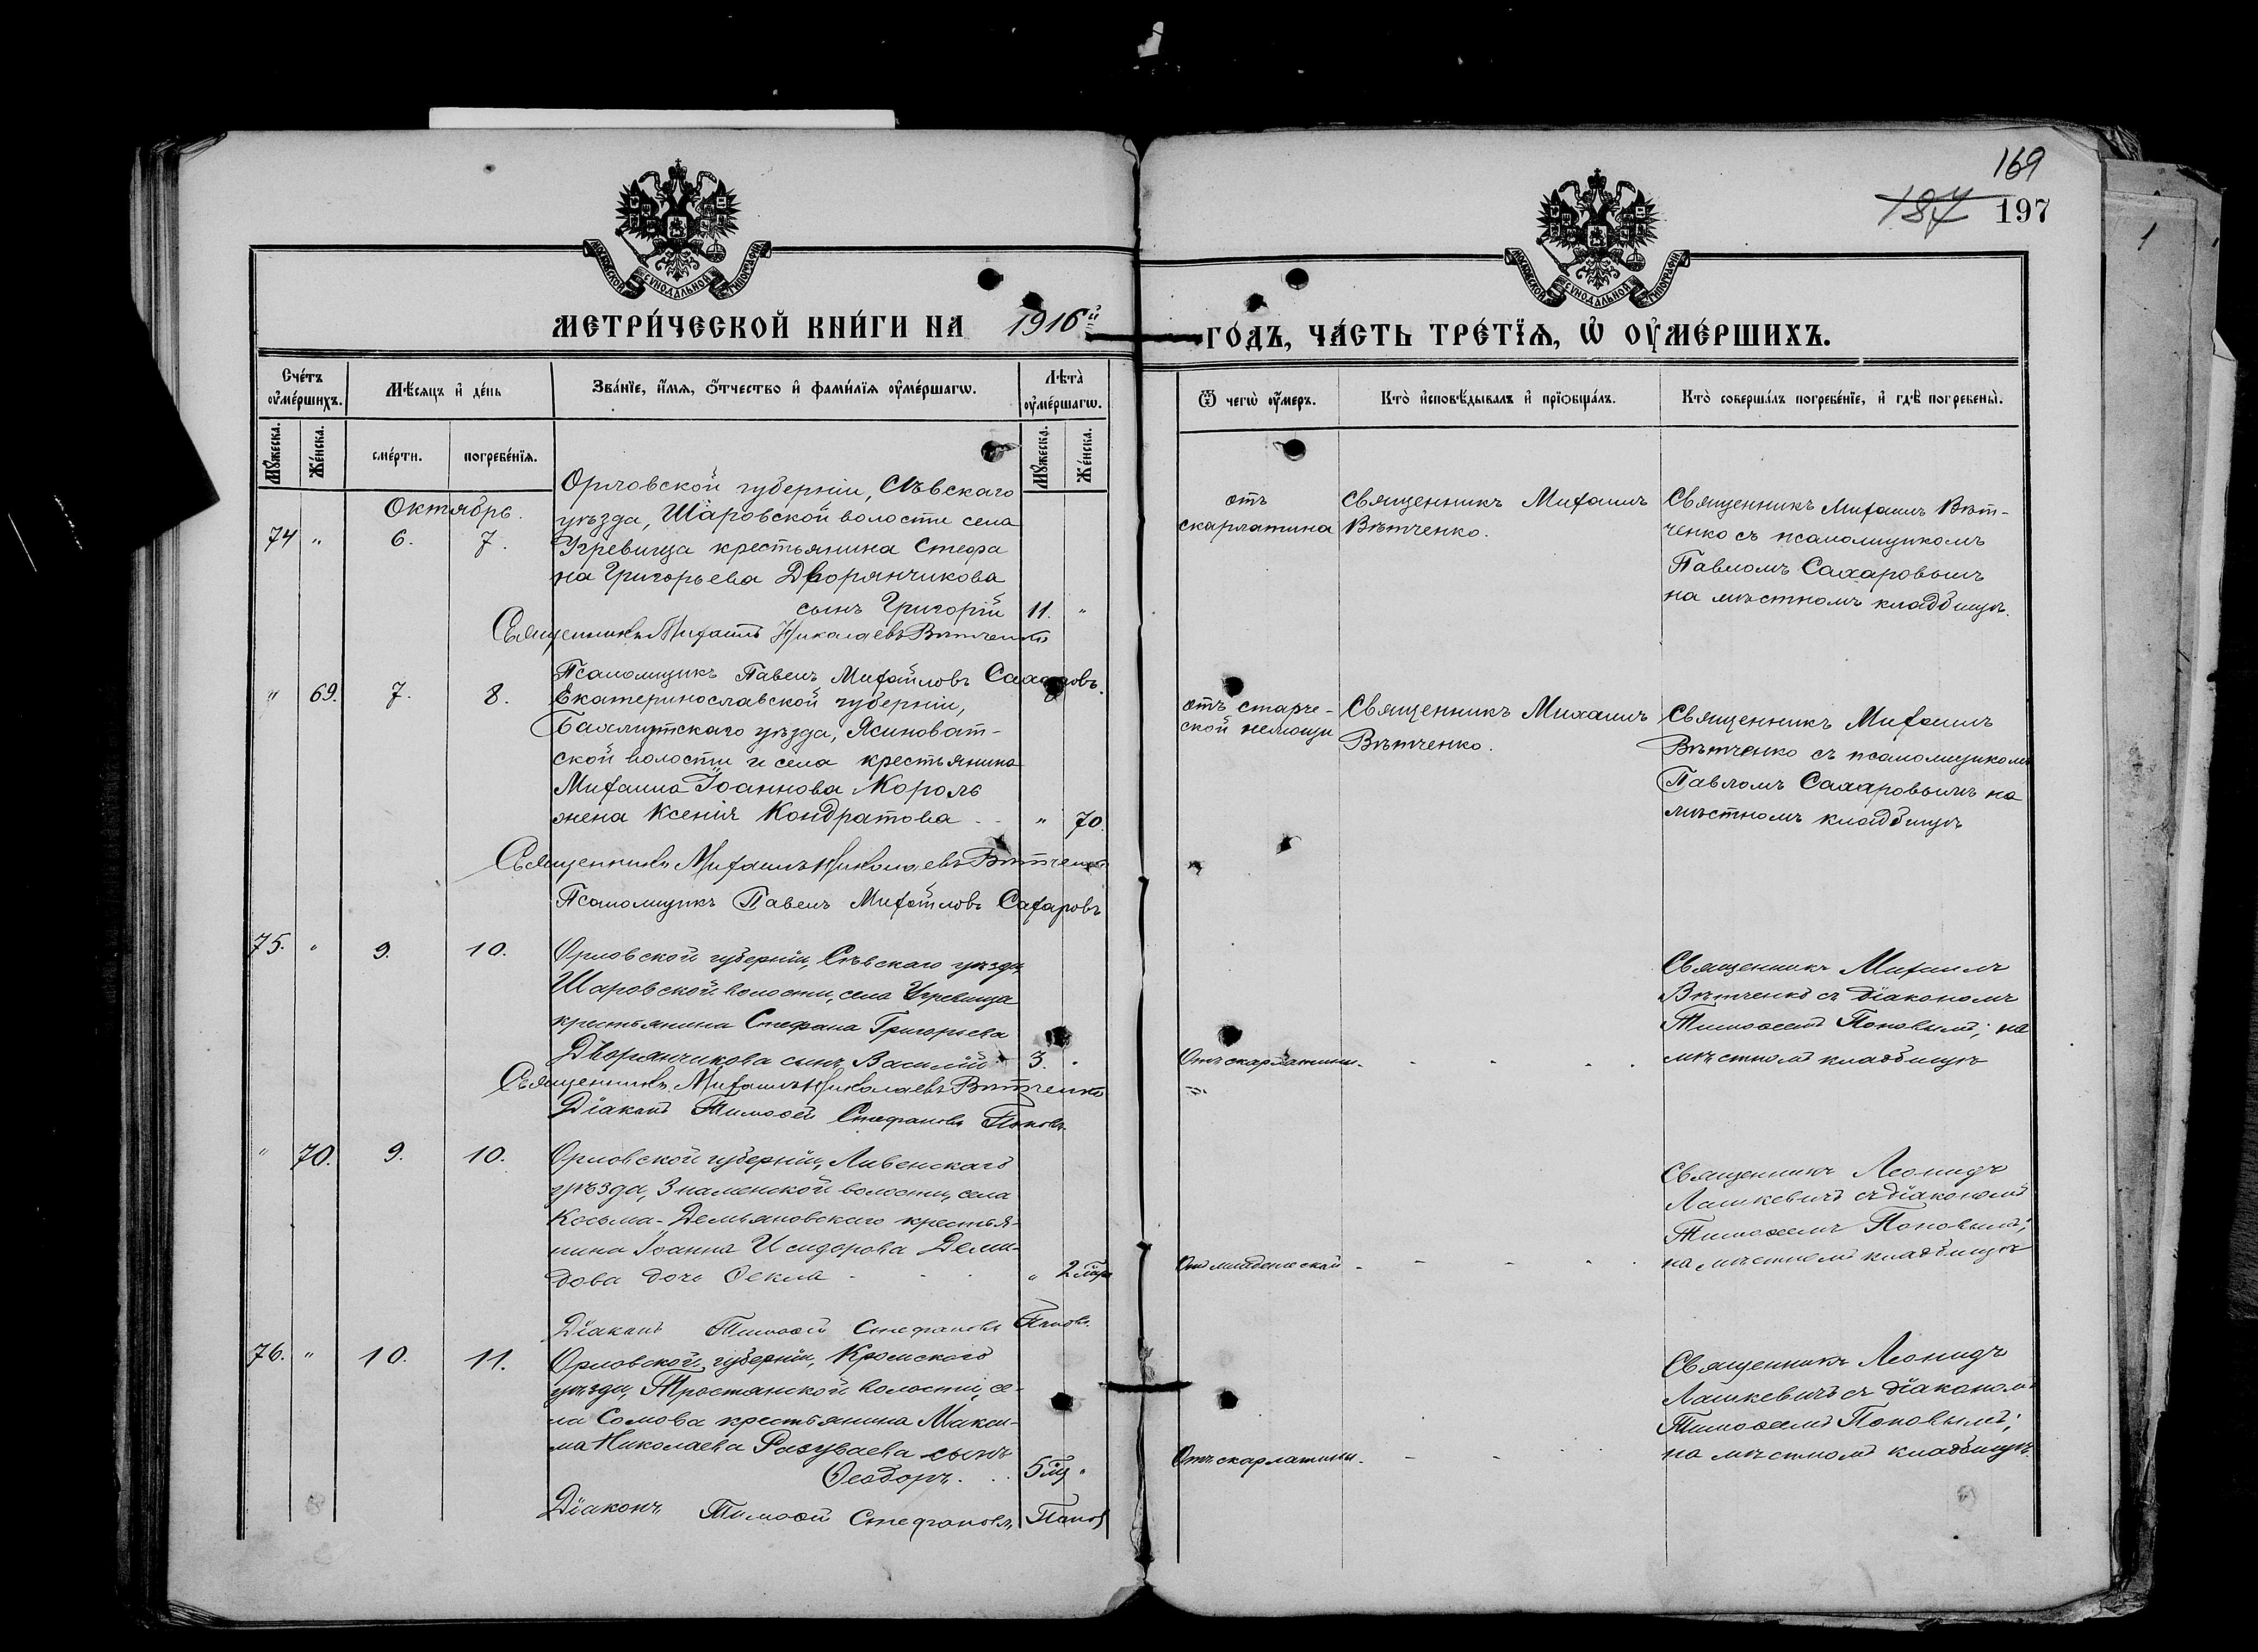 169
187 197
МОСКОВСКОЙ СѴНОДАЛЬНОЙ ТИПОГРАФІИ
МОСКОВСКОЙ СѴНОДАЛЬНОЙ ТИПОГРАФІИ
МЕТРИ́ЧЕСКОЙ КНИ́ГИ НА 1916й
ГО́ДЪ, ЧА́СТЬ ТРЕ́ТЇѦ, Ѽ ОУ҆МЕ́РШИХЪ.
Сче́тъ оу҆ме́ршихъ.
Мѣ́сѧцъ и҆ де́нь
Зва́нїе, и҆́мѧ, ѻ҆́тчество и҆ фами́лїѧ оу҆ме́ршагѡ.
Лѣ́та оу҆ме́ршагѡ.
Ѿ чегѡ̀ оу҆́меръ.
Кто̀ и҆сповѣ́дывалъ и҆ прїѻбща́лъ.
Кто̀ соверша́лъ погребе́нїе, и҆ гдѣ̀ погребены̀.
Мꙋ́жеска.
Же́нска.
сме́рти.
погребе́нїѧ.
Мꙋ́жеска.
Же́нска.
Октябрь.
74 " 6. 7.
Орловской губерніи, Сѣвскаго
уѣзда, Шаровской волости села
Угревища крестьянина Стефа
на Григорьева Дворянчикова
сынъ Григорій 11. "
Священникъ Михаилъ Николаевъ Вѣтченко
Псаломщикъ Павелъ Михайловъ Сахаровъ.
отъ
скарлатина
Священникъ Михаилъ
Вѣтченко.
Священникъ Михаилъ Вѣт-
ченко съ псаломщикомъ
Павломъ Сахаровымъ
на мѣстномъ кладбищѣ.
" 69. 7. 8.
Екатеринославской губерніи,
Бахмутскаго уѣзда, Ясиноват-
ской волости и села крестьянина
Михаила Іоаннова Король
жена Ксенія Кондратова - - " 70.
Священникъ Михаилъ Николаевъ Вѣтченко
Псаломщикъ Павелъ Михайловъ Сахаровъ
отъ старче-
ской немощи
Священникъ Михаилъ
Вѣтченко.
Священникъ Михаилъ
Вѣтченко съ псаломщикомъ
Павломъ Сахаровымъ на
мѣстномъ кладбищѣ
75. " 9. 10.
Орловской губерніи, Сѣвскаго уѣзда,
Шаровской волости, села Угревища
крестьянина Стефана Григорьева
Дворянчикова сынъ Василій - 3. "
Священникъ Михаилъ Николаевъ Вѣтченко
Діаконъ Тимоѳей Стефановъ Поповъ
Отъ скарлатины. - - -
Священникъ Михаилъ
Вѣтченко съ діакономъ
Тимоѳеемъ Поповымъ; на
мѣстномъ кладбищѣ
" 70. 9. 10.
Орловской губерніи, Ливенскаго
уѣзда, Знаменской волости, села
Косьма-Демьяновскаго крестья-
нина Іоанна Исидорова Деми-
дова дочь Ѳекла - - - "
Діаконъ Тимоѳей Стефановъ Поповъ.
От младенческой - - - -
Священникъ Леонидъ
Лашкевичъ съ діакономъ
Тимоѳеемъ Поповымъ;
на мѣстномъ кладбищѣ
76. " 10. 11.
Орловской губерніи, Кромскаго
уѣзда, Тростянской волости, се-
ла Сомова крестьянина Макси-
ма Николаева Разуваева сынъ
Ѳеодоръ. - -
Діаконъ Тимоѳей Стефановъ Попов
Отъ скарлатины. - - -
Священникъ Леонидъ
Лашкевичъ съ діакономъ
Тимоѳеемъ Поповымъ;
на мѣстномъ кладбищѣ.
1